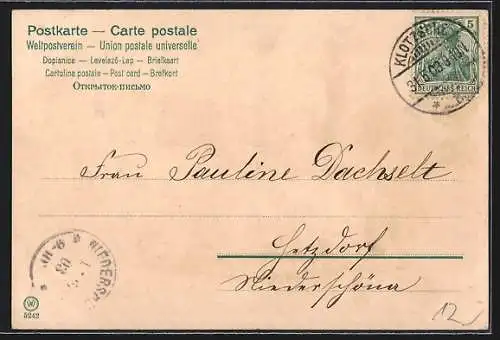 Postkarte — Carte postale
Weltpostverein — Union postale universelle
Dopisnice — Levelező-Lap — Briefkaart
Cartolina postale — Post card — Brefkort
Открытое-письмо
KLOTZSCHE
5
DEUTSCHES REICH
Frau Pauline Dachselt
Hetzdorf
Niederschöna
NIEDERSC
W
5242
12